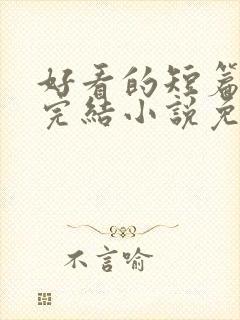 好看的短篇
完結小說免
不言喻